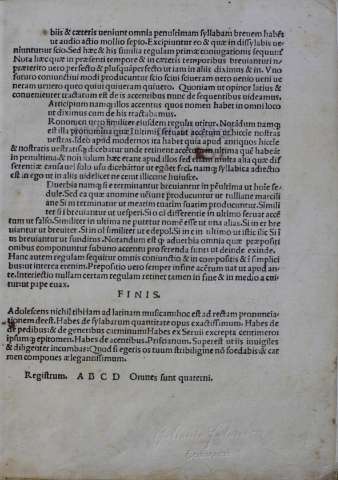 biis & cæteris ueniunt omnia penultimam syllabam breuem habēt
ut audio actio mollio septo. Excipiuntur eo & quæ in dissylabis ue
niuntuntur scio. Sed hæc & his similia regulam primæ coniugationis sequunt᷑
Nota hæc quæ in præsenti tempore & in cæteris temporibus breuiantur ni
preterito uero perfecto & plusquāperfecto ut iam in aliis diximus & in. Vno
futuro coniunctiui modi producuntur scio sciui sciueram uero uenio ueni ue
neram uenero queo quiui quiueram quiuero. Quoniam ut opinor latius &
conuenientius tractatum est de iis accentibus nunc de sequentibus uideamus.
Participium nanq; illos accentus quos nomen habet in omni loco
ut diximus cum de his tractabamus.
Pronomen uero similiter eiusdem regulas utitur. Notādum namq;
est illa pronomina quæ in ultima seruant accētum ut hiccie nostras
uestras. Ideo apud modernos ita habet quia apud antiquos hiccie
& nostratis uestratis dicebatur unde retinet accētum in ultima quē habebāt
in penultima & non solum hæc erant apud illos sed etiam multa alia quæ dif
ferentiæ causa uel solo usu dicebantur ut egōet feci. namq; syllabica adiectio
est in ego ut in aliis uidelicet ne ceu illiccine huiusce.
Aduerbia namq; si e terminantur breuiantur in pēultima ut hoīe se
de. Sed ea quæ a nomine ueniunt producuntur ut tulliane marcili
ane Si in terminatur ut mearim tuarim suarim producuntur. Simili
ter si i breuiantur ut uesperi. Si o ob differentiē in ultimo seruat accē
tum ut falso. Similiter in ultima ne putetur nomē esse ut una alias. Si in er bre
uiantur ut breuiter. Si in ol similiter ut edepol. Si in c in ultimo ut istic illic Si i
us breuiantur ut funditus. Notandum est q; aduerbia omnia quæ præpositi
onibus componuntur subuno accentu proferenda sunt ut deinde exinde.
Hanc autem regulam sequitur omnis coniunctio & in compositis & i simplici
bus ut interea etenim. Prepositio uero semper infine acētum uat ut apud an
te. Interiectio nullam certam regulam retinet tamen in fine & in medio a cu
tur ut papæ euax.
FINIS.
Adolescens nichil tibi Iam ad latinam musicam: hoc est ad rectam pronuncia
tionem deest. Habes de syllabarum quantitate opus exactissimum. Habes
de pedibus: & de generibus carminum: Habes ex Seruii excerpta centimetro
ipsumq; epitomen. Habes de accentibus. Priscianum. Superest ut iis inuigiles
& diligenter incumbas: Quod si egeris os tuum stribiligine nō sordabis: & car
men compones ælegantissimum.
Registrum. A B C D Omnes sunt quaterni.